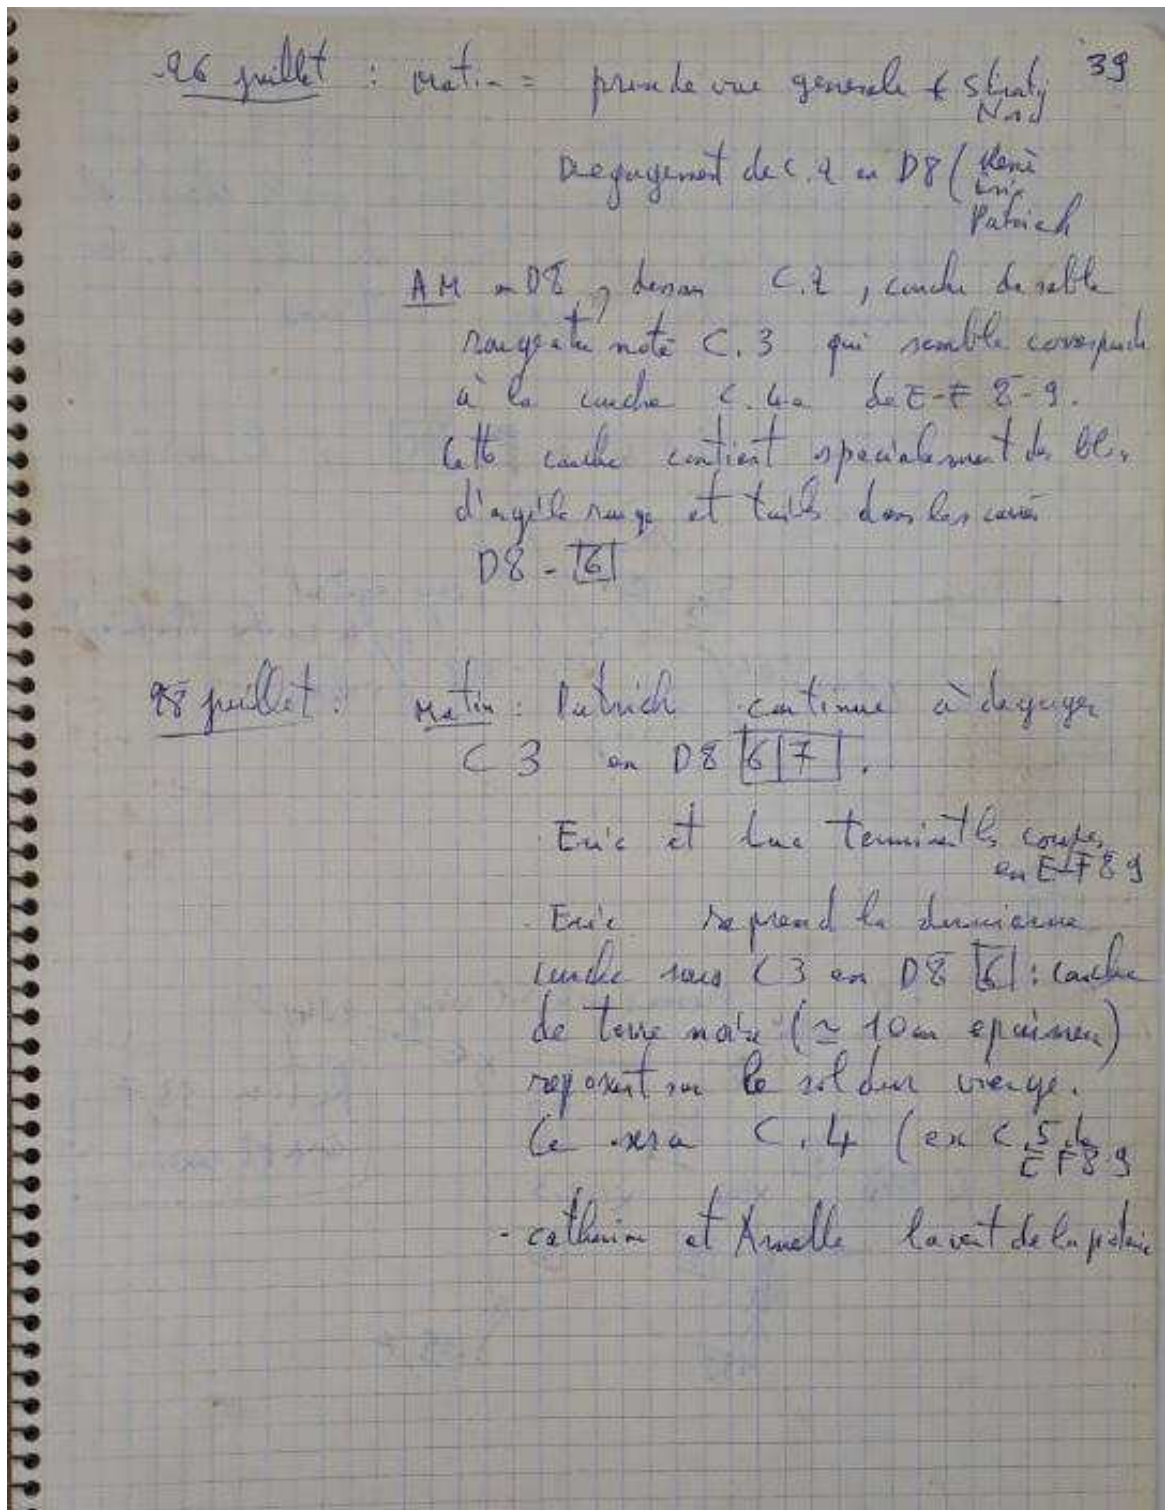 39
26 juillet : matin = prise de vue generale & Stratig
Nord
Degagement de C.2 en D8 ( René
Eric
Patrick
AM en D8, dessous C.2, couche de sable
rougeatre noté C.3 qui semble correspondre
à la couche C.4a de E-F 8-9.
Cette couche contient specialement des blocs
d'argile rouge et tuiles dans les carrés
D8 - 6
28 juillet : matin : Patrick continue à degager
C 3 en D8 6 7.
Eric et Luc terminent les coupes
en E-F 8 9
- Eric reprend la derniere
couche sous C3 en D8 6 : couche
de terre noire (≃ 10 cm epaisseur)
reposant sur le sol dur vierge.
Ce sera C.4 (ex C.5 de
E F 8.9
- Catherine et Armelle lavent de la poterie